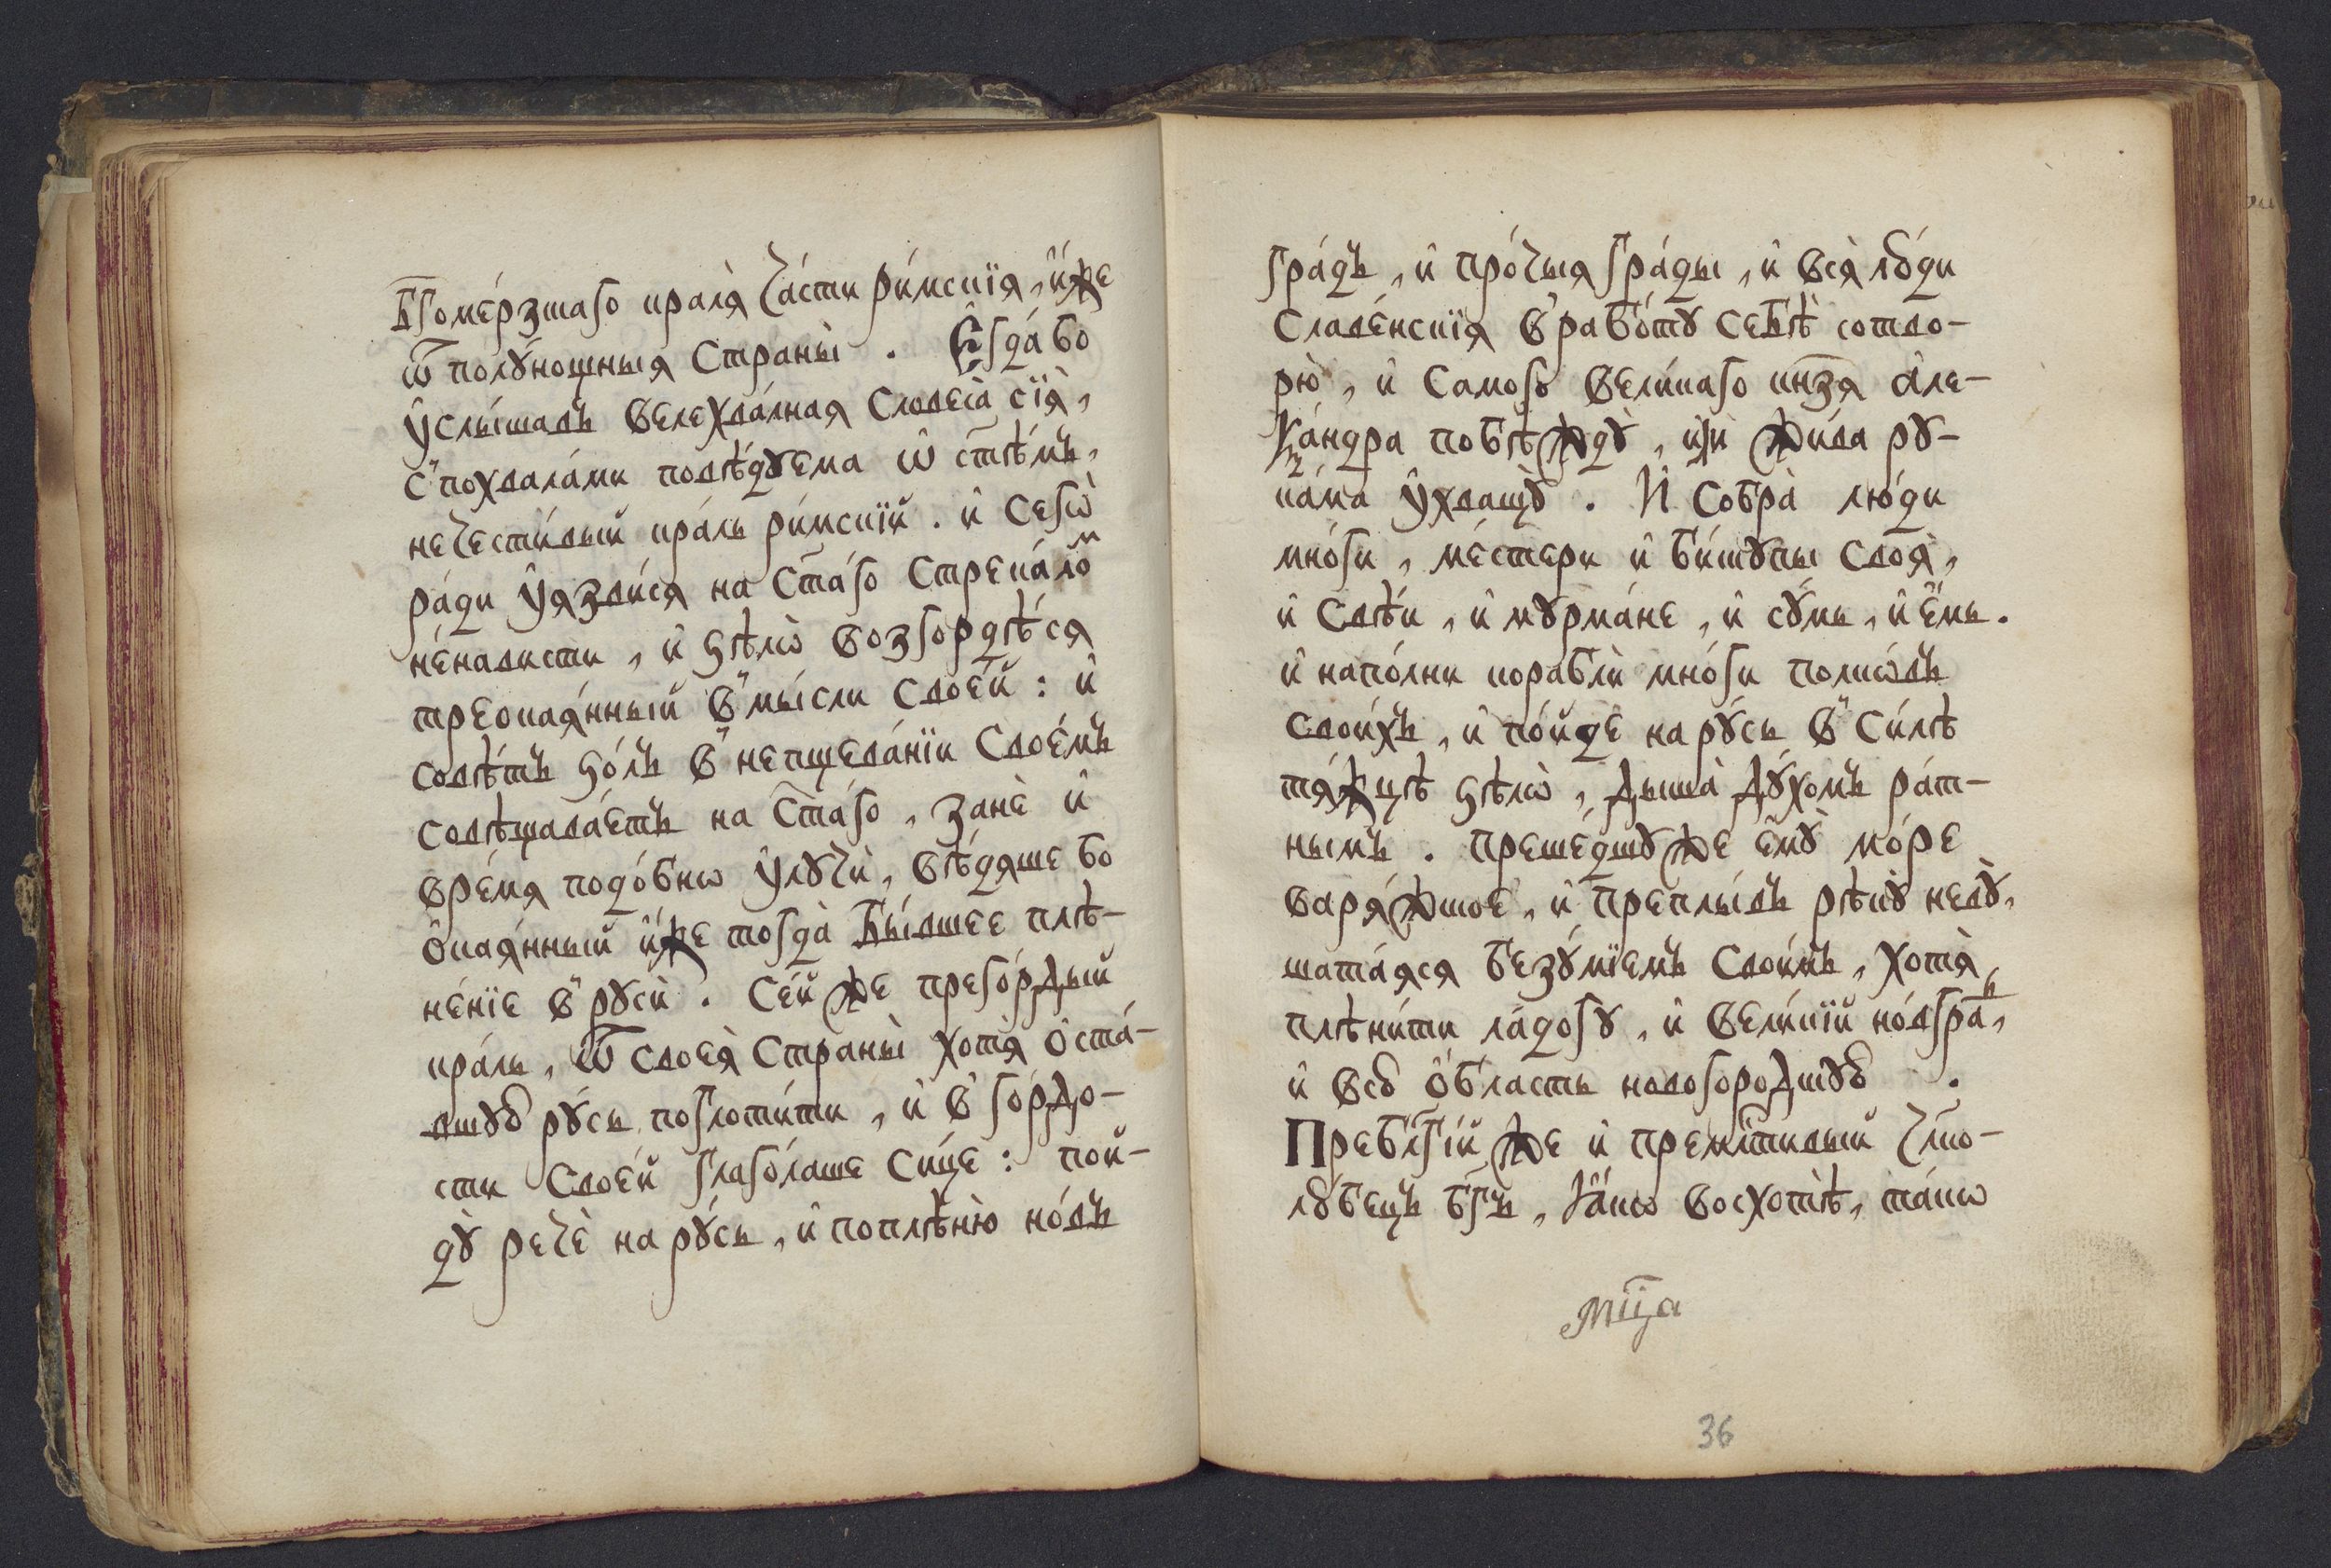 Бг҃оме́рзкаго кралѧ̀ ча́сти ри́мскїѧ, и҆́же
ѿ полꙋ́нощныѧ страны̀. Є҆гда́ бо
ᲂу҆слы́шавъ велехва́лнаѧ словеса̀ сїѧ̀,
с̾ похвала́ми повѣ́дꙋема ѿ ст҃ѣ́мъ,
нечести́вый кра́ль ри́мскїй. и҆ сегѡ̀
ра́ди ᲂу҆ѧзви́сѧ на ст҃а́го стрека́ло́м
не́нависти, и҆ ѕѣлѡ̀ возгордѣ́сѧ
треокаѧ́нный в̾ мы́сли свое́й: и҆
совѣ́тъ ѕо́лъ в̾ непщева́нїи свое́мъ
совѣщава́етъ на ст҃а́го, занѐ и҆
вре́мѧ подо́бно ᲂу҆лꙋчѝ, вѣ́дѧше бо
ѻ҆каѧ́нный и҆́же тогда̀ бы́вшее плѣ-
не́нїе в̾ рꙋсѝ. Се́й же прего́рдый
кра́ль, ѿ своеѧ̀ страны̀ хотѧ̀ ѡ҆ста́-
вшꙋю рꙋ́сь поглоти́ти, и҆ в̾ го́рдо-
сти свое́й глаго́лаше си́це: пой-
дꙋ̀ речѐ на рꙋ́сь, и҆ поплѣню̀ но́въ
гра́дъ, и҆ про́чыѧ гра́ды, и҆ всѧ̀ лю́ди
славе́нскїѧ в̾ рабо́тꙋ себѣ̀ сотво-
рю̀, и҆ самого̀ вели́каго кн҃зѧ а҆ле-
ѯа́ндра побѣждꙋ̀, и҆лѝ жи́ва рꙋ-
ка́ма ᲂу҆хващꙋ̀. И҆ собра̀ лю́ди
мно́ги, ме́стери и҆ би́скꙋпы своѧ̀,
и҆ свѣ́и, и҆ мꙋрма́не, и҆ сꙋ́мь, и҆ є҆́мь.
и҆ напо́лни кораблѝ мно́ги полкѡ́въ
свои́хъ, и҆ по́йде на рꙋ́сь в̾ си́лѣ
тѧ́жцѣ ѕѣлѡ̀, дыша̀ дꙋ́хомъ ра́т-
нымъ. преше́дшꙋ же є҆мꙋ̀ мо́ре
варѧ́жское, и҆ преплы́въ рѣкꙋ̀ невꙋ̀,
шата́ѧсѧ безꙋ́мїемъ свои́мъ, хотѧ̀
плѣни́ти ла́догꙋ, и҆ вели́кїй но́вгра́д,
и҆ всю̀ ѻ҆́бласть новогоро́дскꙋю.
Пребл҃гі́й же и҆ премл҃тивый чл҃ко-
лю́бецъ бг҃ъ, ꙗ҆́кѡ восхотѣ̀, та́кѡ
мц҃а
36